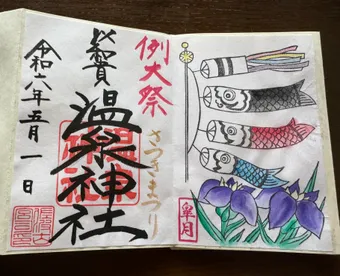 例大祭
さつきまつり
奉賛
温泉神社
令和六年五月一日
皐月